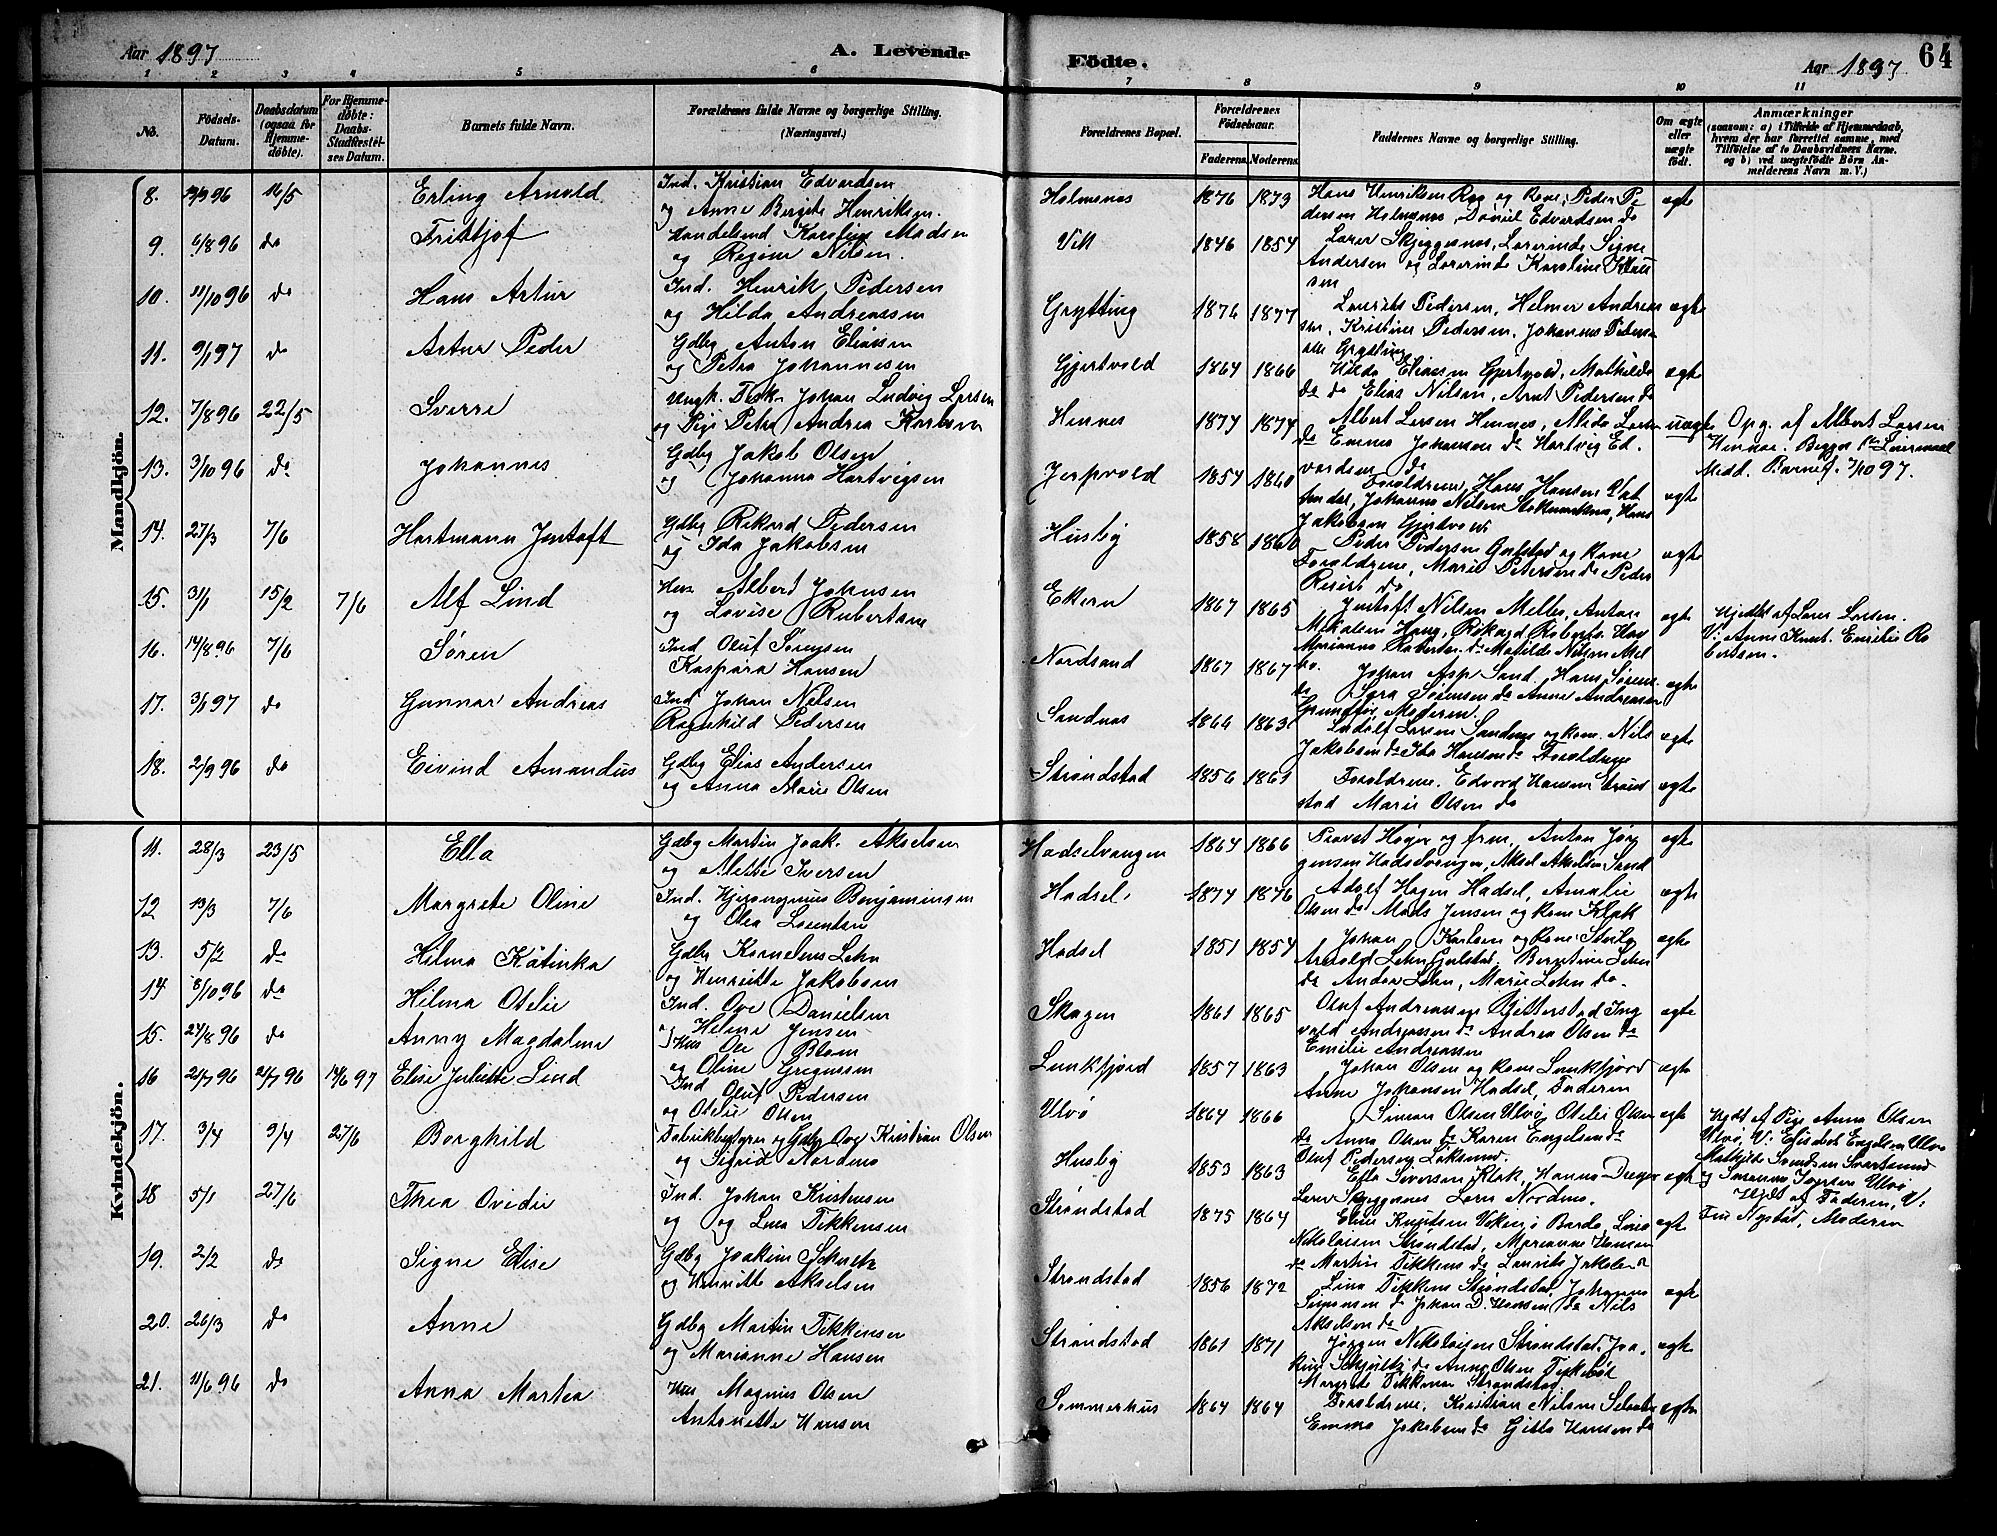 Aar 1897
A. Levende Födte.
Aar 1897
64
1 2 3 4 5 6 7 8 9 10 11
No.
Födsels-Datum.
Daabsdatum (ogsaa for Hjemmedöbte).
For Hjemmedöbte: Daabs-Stadfæstelses Datum.
Barnets fulde Navn.
Forældrenes fulde Navne og borgerlige Stilling. (Næringsvei.)
Forældrenes Bopæl.
Forældrenes Födselsaar.
Faderens. Moderens.
Faddernes Navne og borgerlige Stilling.
Om ægte eller uægte födt.
Anmærkninger
(saasom: a) i Tilfælde af Hjemmedaab, hvem der har forrettet samme, med Tilföielse af to Daabsvidners Navne. og b) ved uægtefödte Börn Anmelderens Navn m. V.)
Mandkjön.
8. 96 16/5 Erling Arnold Ind. Kristian Edvardsen og Anne Bergite Henriksen Holmsnes 1876 1873 ægte
9. 6/8 96 do Fridtjof Handelsmd Karelius Madsen og Regine Nilsen. Vik 1846 1854 Lærer Skjeggesnes, Lærerinde Signe Andersen og Lærerinde Karoline
10. 11/10 96 do Hans Artur Ind. Henrik Pedersen og Hilda Andreassen Grytting 1876 1877 Laurits Pedersen, Helmer Andreassen, Kristine Pedersen, Johannes Petersen alle Grytting ægte
11. 9/1 97 do Artur Peder Gdbg Anton Eliassen og Petra Johannesen Gjertvold 1864 1866 Hilda Eliassen Gjertvold, Mathilde do do Elias Nilsen, Arnt Pedersen do ægte
12. 7/8 96 22/5 Sverre Ungk. Fisk. Johan Ludvig Larsen og Pige Petra Andrea Karlsen Hennes 1877 1874 Albert Larsen Hennes, Alida Larsen do Emma Johansen do Hartvig Edvardsen do uægte Opg. af Albert Larsen Hennes. Begges 1ste Leiermaal Medd. Barnef. 7/10 97.
13. 3/10 96 do Johannes Gdbg Jakob Olsen og Johanna Hartvigsen Jerpvold 1854 1860 Forældrene, Hans Hansen Johanna Nilsen Stokmarknes, Hans Jakobsen Gjertvold ægte
14. 27/3 7/6 Hartmann Jentoft Gdbg Rikard Pedersen og Ida Jakobsen Husby 1858 1860 Peder Pedersen og Kone Forældrene, Marie Petersen do Peder do ægte
15. 31/1 15/2 7/6 Alf Lind Hus Albert Johnsen og Lovise Robertsen Ekern 1867 1865 Jentoft Nilsen Melbo, Anton Mikalsen Haug, Rikard Roberts. Hov Marianne Roberts. do Matilde Nilsen Melbo. ægte Hjdbt af Lærer Larsen. V: Anne Knut. Emilie Robertsen.
16. 14/8 96 7/6 Søren Ind Oluf Sørensen Kaspara Hansen Nordsand 1867 1867 Johan Asp Sand, Hans Sørens. do Sara Sørensen do Anne Andreassen Moderen. ægte
17. 3/1 97 do Gunnar Andreas Ind Johan Nilsen Regnhild Pedersen Sandnes 1864 1863 Ludolf Larsen Sandnes og Kone. Nils Jakobsen do Ida Hansen do Forældrene ægte
18. 2/9 96 do Eivind Amandus Gdbg Elias Andersen og Anna Marie Olsen Strøndstad 1856 1861 Forældrene. Edvard Hansen Strøndstad Marie Olsen do ægte
Kvindekjön.
11. 28/3 23/5 Ella Gdbg Martin Joak. Akselsen og Alette Iversen Hadselvangen 1864 1866 Provst Høyer og frue, Anton Jørgensen Hadselvangen, Aksel Akselsen Sand ægte
12 13/3 7/6 Margrete Oline Ind. Hjeronymus Benjaminsen og Olea Lorentsen Hadsel. 1874 1876 Adolf Hagen Hadsel, Amalie Olsen do Mads Jensen og Kone Klak ægte
13. 5/2 do Hilma Katinka Gdbg Kornelius Lehn og Henriette Jakobsen Hadsel 1851 1854 Johan Karlsen og Kone Arnold Lehn Bergitine Lehn do Andor Lehn, Marie Lehn do. ægte
14 8/10 96 do Hilma Otelie Ind. Ove Danielsen og Helma Jensen Skagen 1861 1865 Oluf Andreassen Ingvald Andreassen do Andrea Olsen do Emilie Andreassen ægte
15. 24/8 96 do Anny Magdalene Hus Ole Blom og Oline Gregussen Lunkfjord 1857 1863 Johan Olsen og Kone Lunkfjord Anne Johansen Hadsel, Faderen ægte
16 21/7 96 21/7 96 14/6 97 Elise Juliette Lind Ind Oluf Pedersen og Otelie Olsen Ulvø 1864 1866 Simon Olsen Ulvø Otelie Olsen do Anna Olsen do Karen Engelsen do Oluf Pedersen ægte Hjdt af Pige Anna Olsen Ulvø, V: Elisabet Engelsen Ulvø Mathilde Svendsen Svartsund
17. 3/4 9/4 27/6 Borghild Fabrikbestyrer og Gdbg Ove Kristian Olsen og Sigrid Nordnes Husby 1853 1863 Ella Iversen Klak, Hanna Dreyer Lærer Skjeggesnes Lars Nordnes. ægte Hjdt af Faderen, V: Fru Nystad, Moderen
18 5/1 27/6 Thea Ovidie Ind. Johan Kristensen og og Lina Fikkensen Strøndstad 1875 1864 Eline Knutsen Bardo, Lina Nikolaisen Strøndstad, Marianne Hansen do Martin Fikkens do Laurits Jakobs. do ægte
19. 2/2 do Signe Elise Gdbg Joakim Schultz og Henriette Akselsen Strøndstad 1856 1872 Lina Fikkens Strøndstad, Johannes Sørensen do Johan D. Hansen do Nils Akselsen do ægte
20. 26/3 do Anne Gdbg Martin Fikkensen og Marianne Hansen Strøndstad 1861 1871 Jørgen Nikolaisen Strøndstad, Joakim Schjultz do Anne Olsen Margrete Fikkensen Strøndstad ægte
21. 11/6 96 do Anna Martea Hus Magnus Olsen Antonette Hansen Sommerhus 1864 1864 Forældrene, Kristian Nilsen Emma Jakobsen do Gitta Hansen do ægte